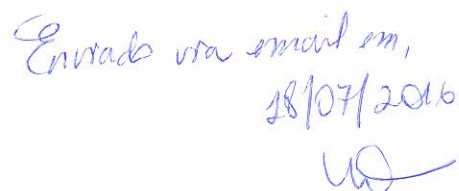 Enviado via email em,
18/07/2016